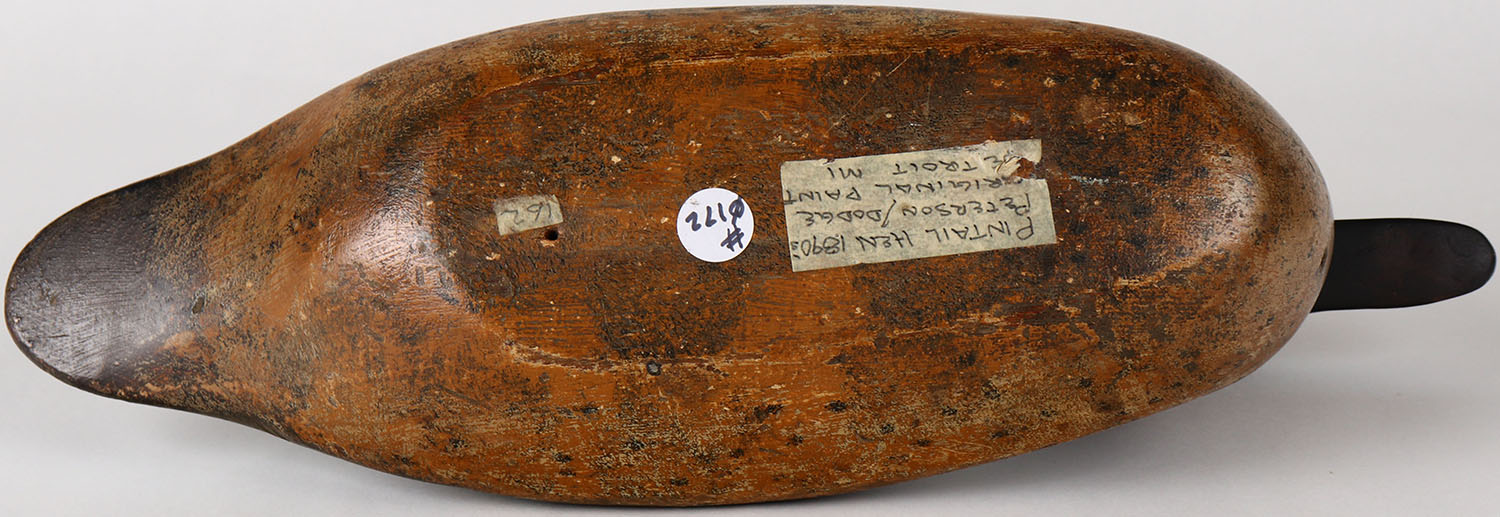 PINTAIL HEN 1890's
PETERSON/DODGE
ORIGINAL PAINT
DETROIT MI
#
0172
162